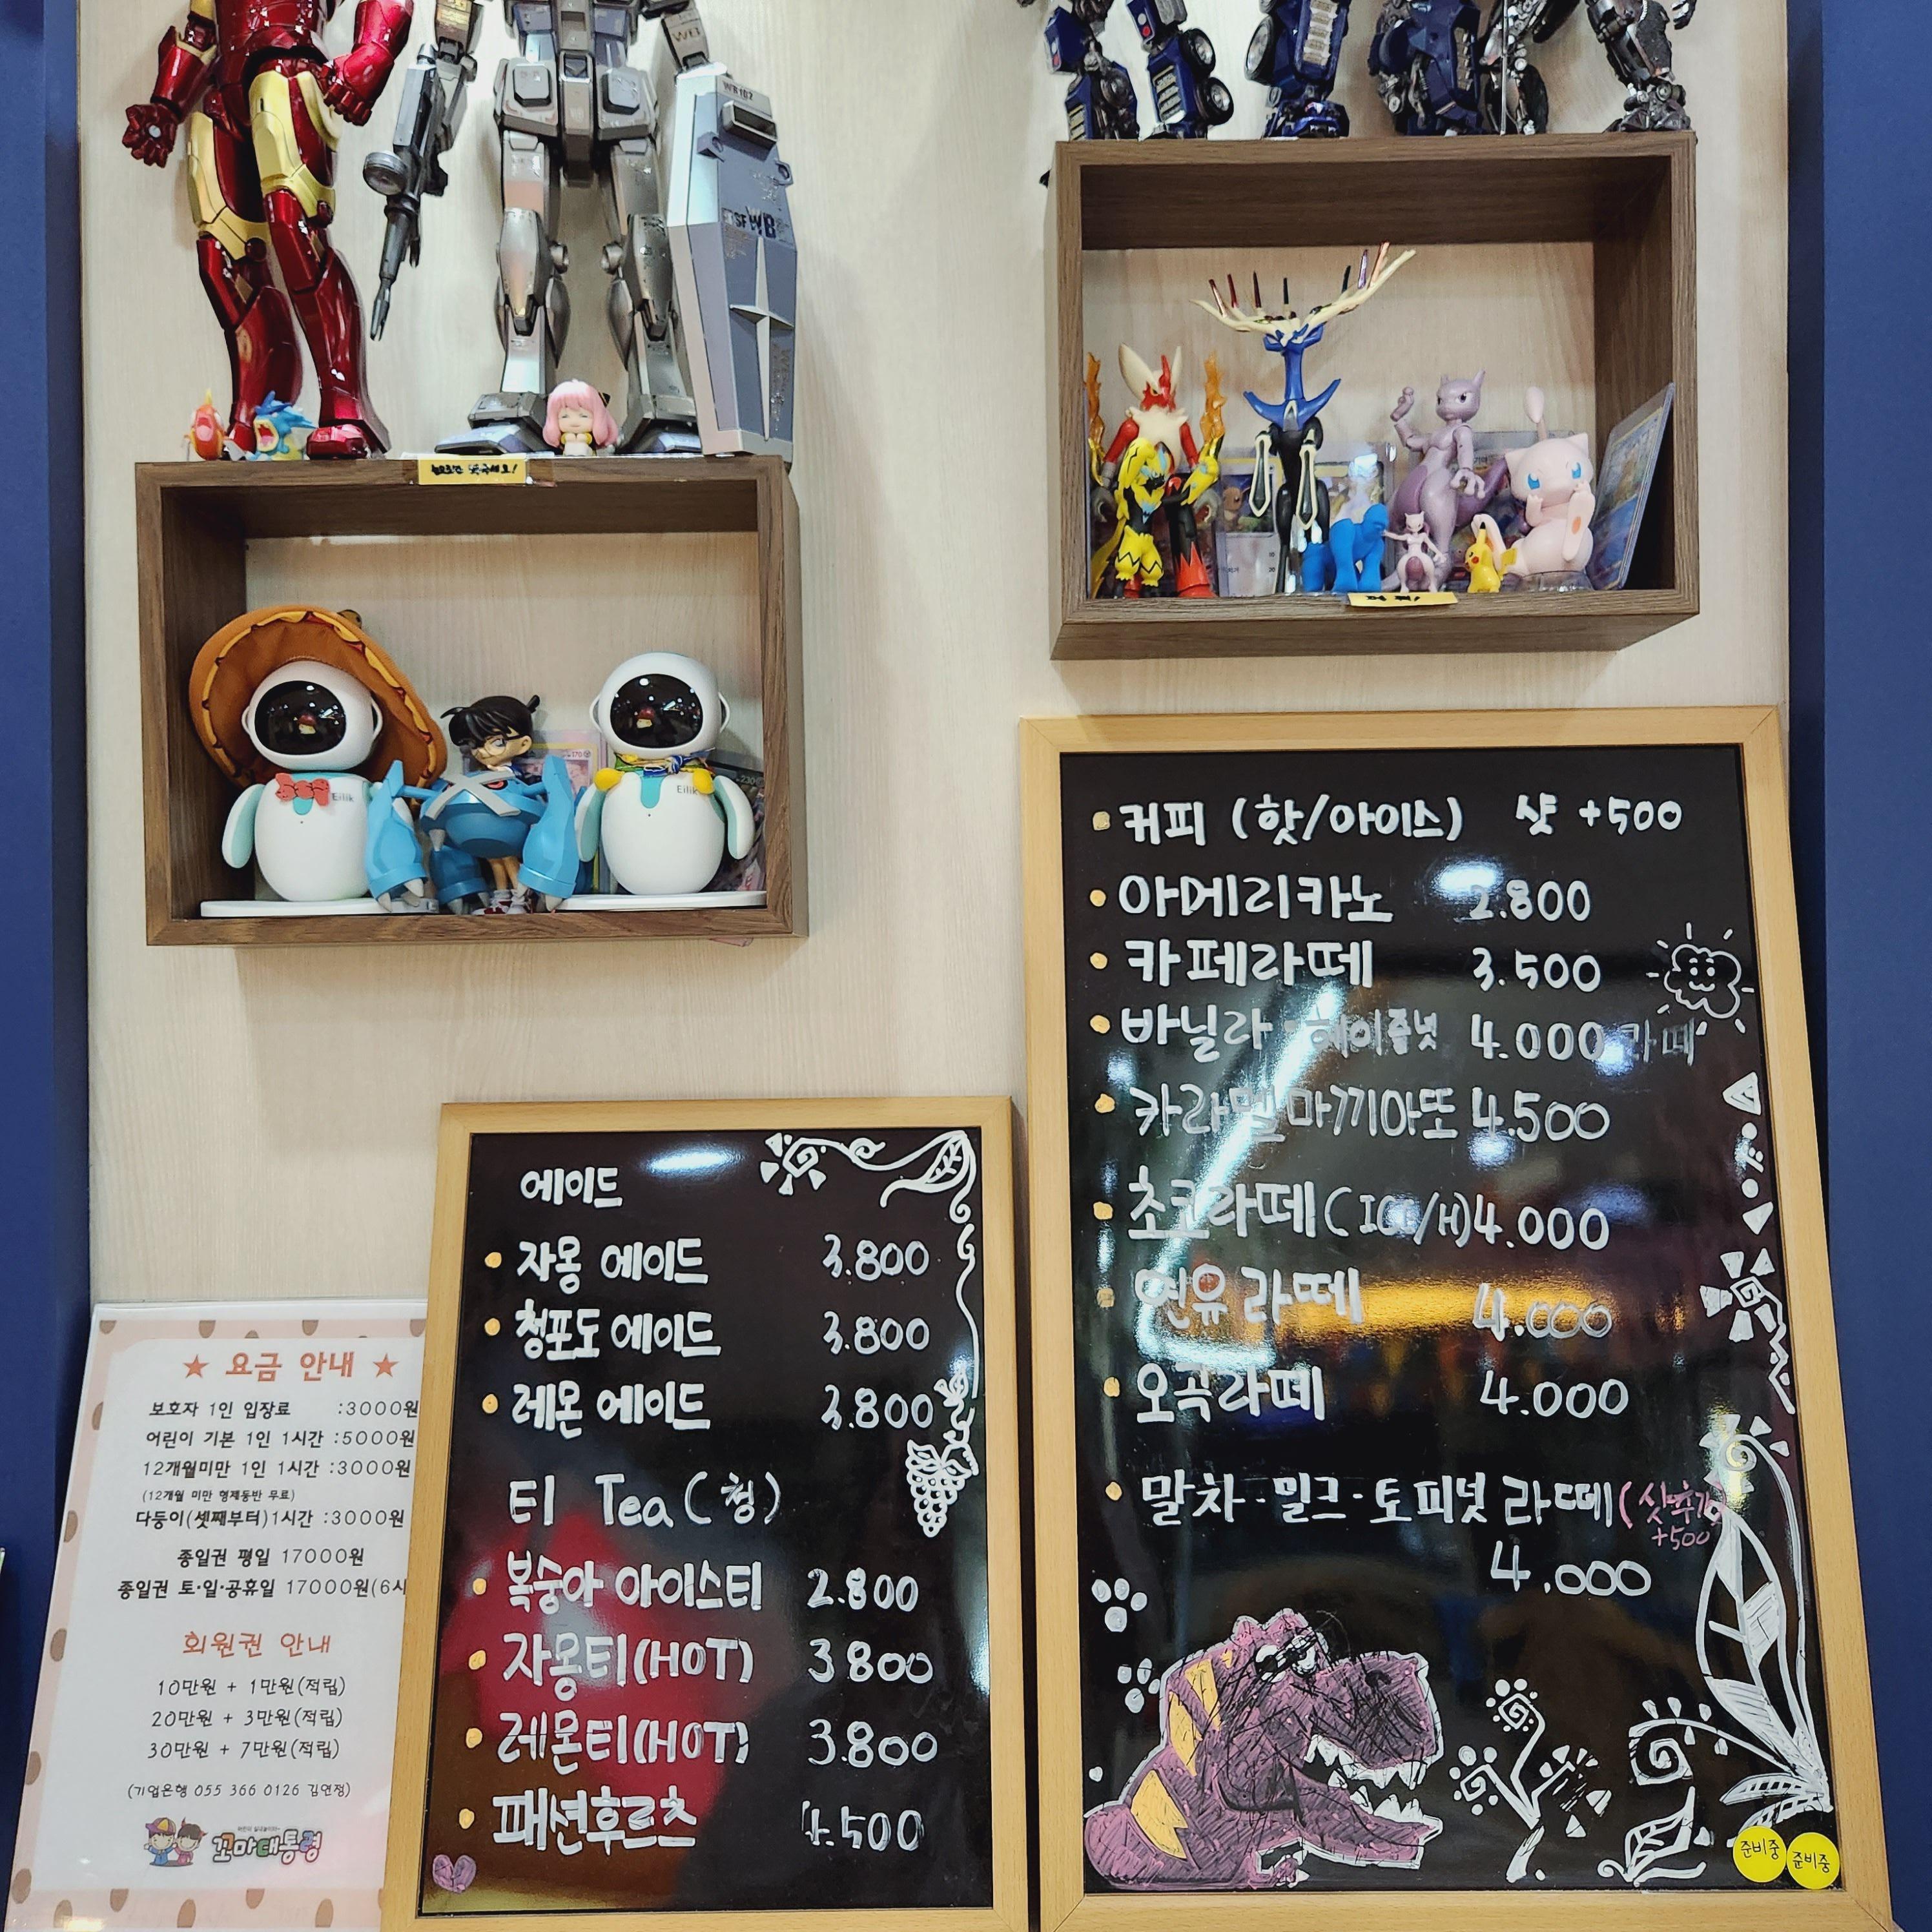 WB102
WB
Eilik
Eilik
커피 (핫/아이스) 샷 +500
아메리카노 2.800
카페라떼 3.500
바닐라 헤이즐넛 4.000 라떼
카라멜마끼아또 4.500
초코라떼(ICE/H) 4.000
연유라떼 4.000
오곡라떼 4.000
말차·밀크·토피넛 라떼(샷추가)
+500
4.000
준비중
준비중
에이드
자몽 에이드 3.800
청포도 에이드 3.800
레몬 에이드 3.800
티 Tea(청)
복숭아 아이스티 2.800
자몽티(HOT) 3800
레몬티(HOT) 3.800
패션후르츠 4.500
★ 요금 안내 ★
보호자 1인 입장료 :3000원
어린이 기본 1인 1시간 :5000원
12개월미만 1인 1시간 :3000원
(12개월 미만 형제동반 무료)
다둥이(셋째부터)1시간 :3000원
종일권 평일 17000원
종일권 토·일·공휴일 17000원(6시
회원권 안내
10만원 + 1만원(적립)
20만원 + 3만원(적립)
30만원 + 7만원(적립)
(기업은행 055 366 0126 김연정)
꼬마대통령